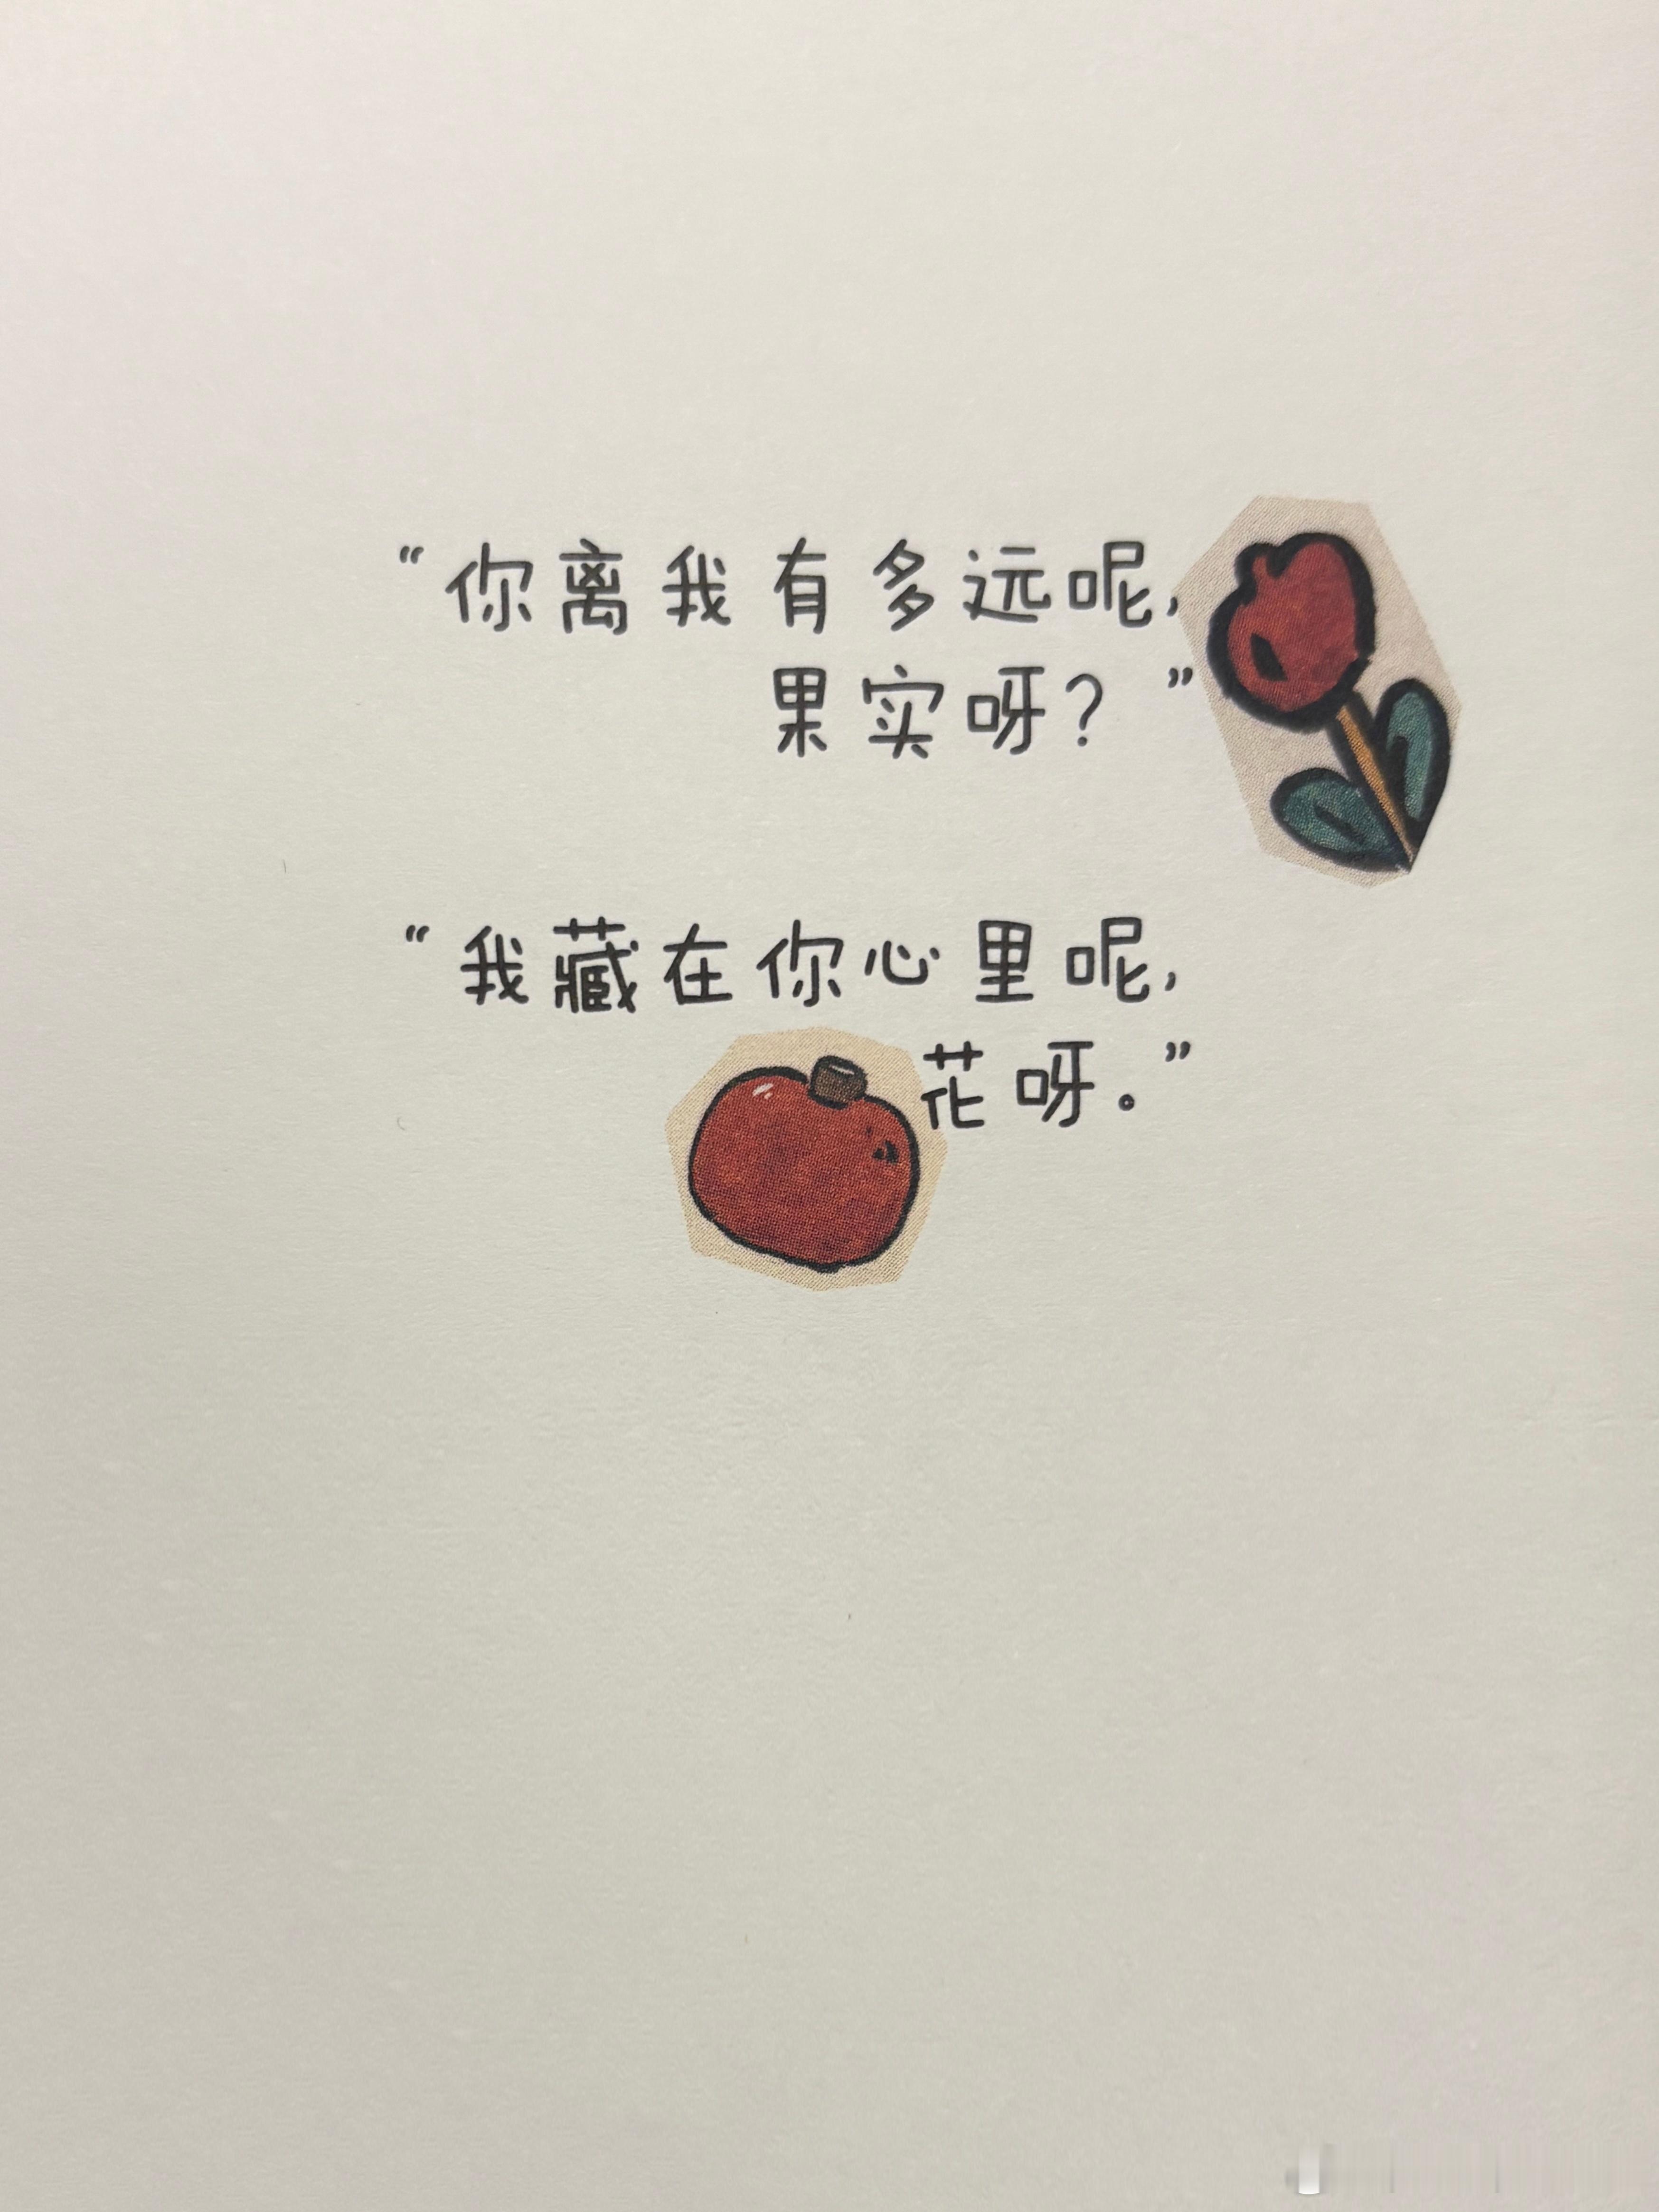 “你离我有多远呢，
果实呀？”
“我藏在你心里呢，
花呀。”